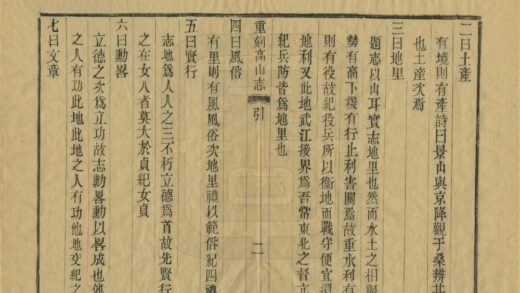 二曰土產
有境則有產詩曰景山與京降觀于桑辨其
也土產次焉
三曰地里
題志以山耳實志地里也然而水土之相
勢有高下機有行止利害關焉故重水利有
則有役故紀役兵所以衛地而戰守便宜
地利又此地武江接界為吾常東北之督
紀兵防皆為地里也
重刻高山志
引
二
四曰風俗
有里則有風風俗次地里禮以範俗紀四禮
五曰賢行
志地為人人之三不朽立德為首故先賢行
之在女人者莫大於貞紀女貞
六曰勳畧
立德之次為立功故志勳畧勳以畧成也他
之人有功此地此地之人有功他地交紀之
七曰文章